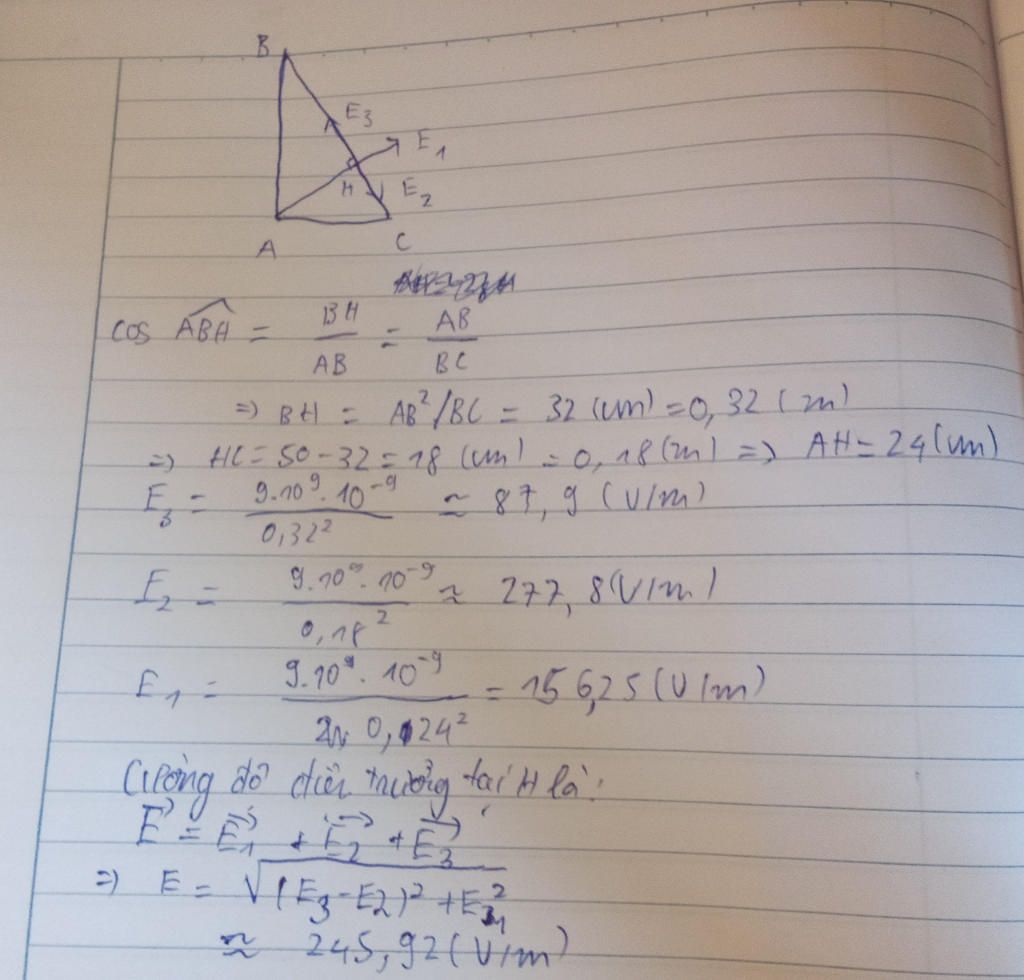 B
E3
E1
H
E2
A
C
cos ABH = BH/AB = AB/BC
=> BH = AB²/BC = 32 (cm) = 0,32 (m)
=> HC = 50 - 32 = 18 (cm) = 0,18 (m) => AH = 24 (cm)
E3 = 9.10⁹.10⁻⁹/0,32² ≈ 87,9 (V/m)
E2 = 9.10⁹.10⁻⁹/0,18² ≈ 277,8 (V/m)
E1 = 9.10⁹.10⁻⁹/0,24² = 156,25 (V/m)
Cường độ điện trường tại H là:
E = E1 + E2 + E3
=> E = √(E3 - E2)² + E1²
≈ 245,92 (V/m)